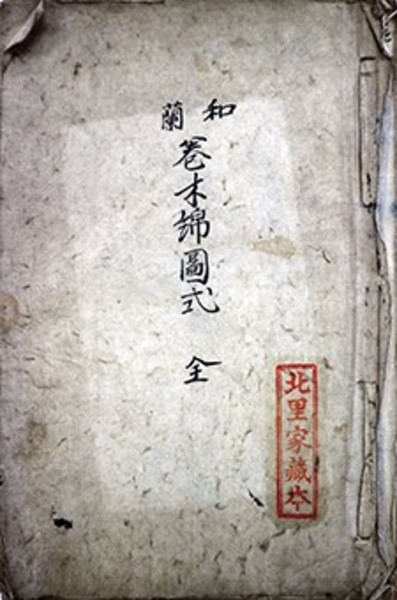 和蘭
卷木綿圖式 全
北里家藏本